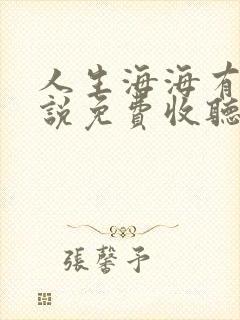 人生海海有
說免費收聽
張馨予